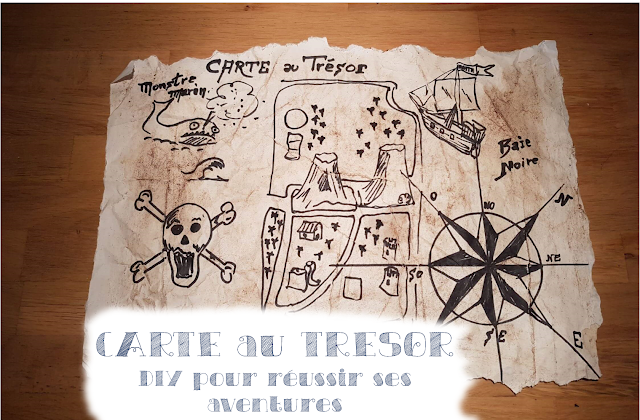 CARTE au Trésor
Monstre
Marin
Baie
Noire
O
NO
N
NE
SO
S
E
E
CARTE au TRESOR
DIY pour réussir ses
aventures